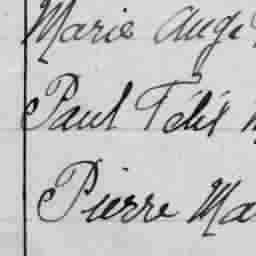 Marie Ang
Paul Félix
Pierre Ma